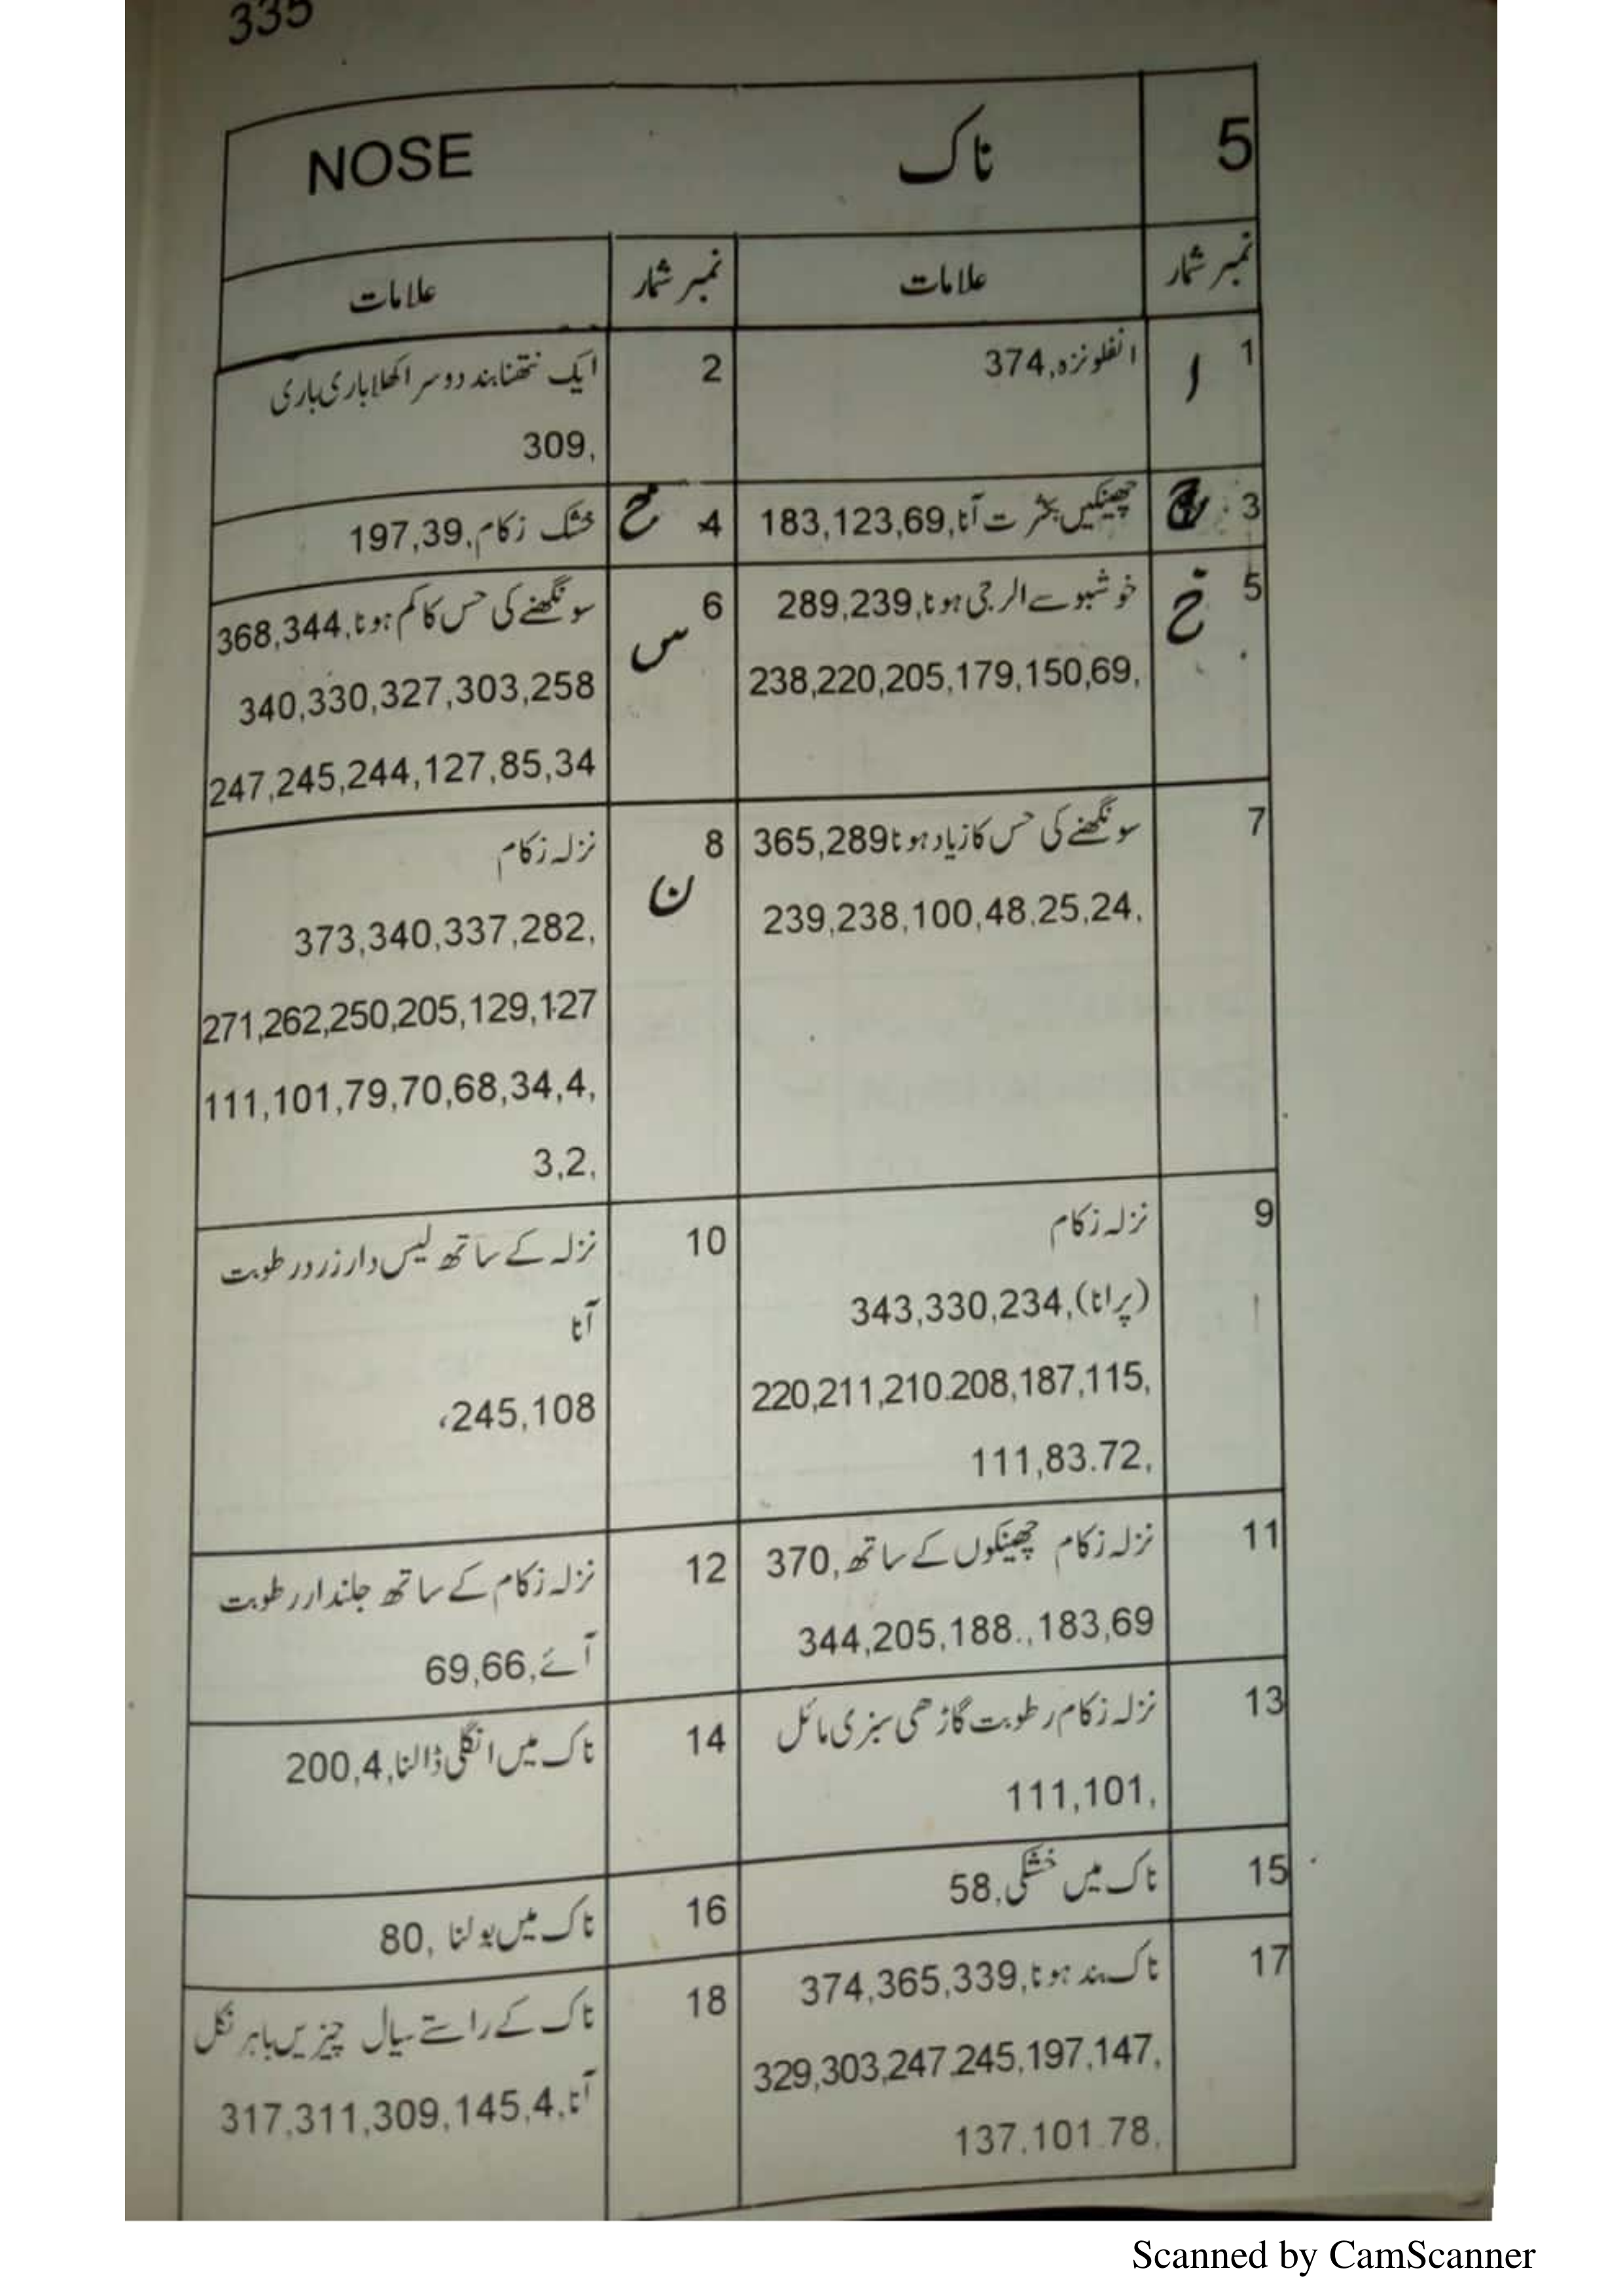 335
5 ناک NOSE
نمبر شمار علامات نمبر شمار علامات
1 ا انفلونزہ,374
2 ایک نتھنا بند دوسرا کھلا باری باری
309,
3 چ چھینکیں بکثرت آنا,183,123,69
4 خ خشک زکام,197,39
5 خ خوشبو سے الرجی ہونا,289,239
238,220,205,179,150,69,
6 س سونگھنے کی حس کا کم ہونا,368,344
340,330,327,303,258
247,245,244,127,85,34
7 سونگھنے کی حس کا زیاد ہونا365,289
239,238,100,48,25,24,
8 ن نزلہ زکام
373,340,337,282,
271,262,250,205,129,127
111,101,79,70,68,34,4,
3,2,
9 نزلہ زکام
(پرانا),343,330,234
220,211,210.208,187,115,
111,83.72,
10 نزلہ کے ساتھ لیس دار زرد رطوبت
آنا
245,108،
11 نزلہ زکام چھینکوں کے ساتھ,370
344,205,188.,183,69
12 نزلہ زکام کے ساتھ جلندار رطوبت
آئے,69,66
13 نزلہ زکام رطوبت گاڑھی سبزی مائل
111,101,
14 ناک میں انگلی ڈالنا,200,4
15 ناک میں خشکی,58
16 ناک میں بولنا ,80
17 ناک بند ہونا,374,365,339
329,303,247.245,197,147,
137,101.78,
18 ناک کے راستے سیال چیزیں باہر نکل
آنا,317,311,309,145,4
Scanned by CamScanner